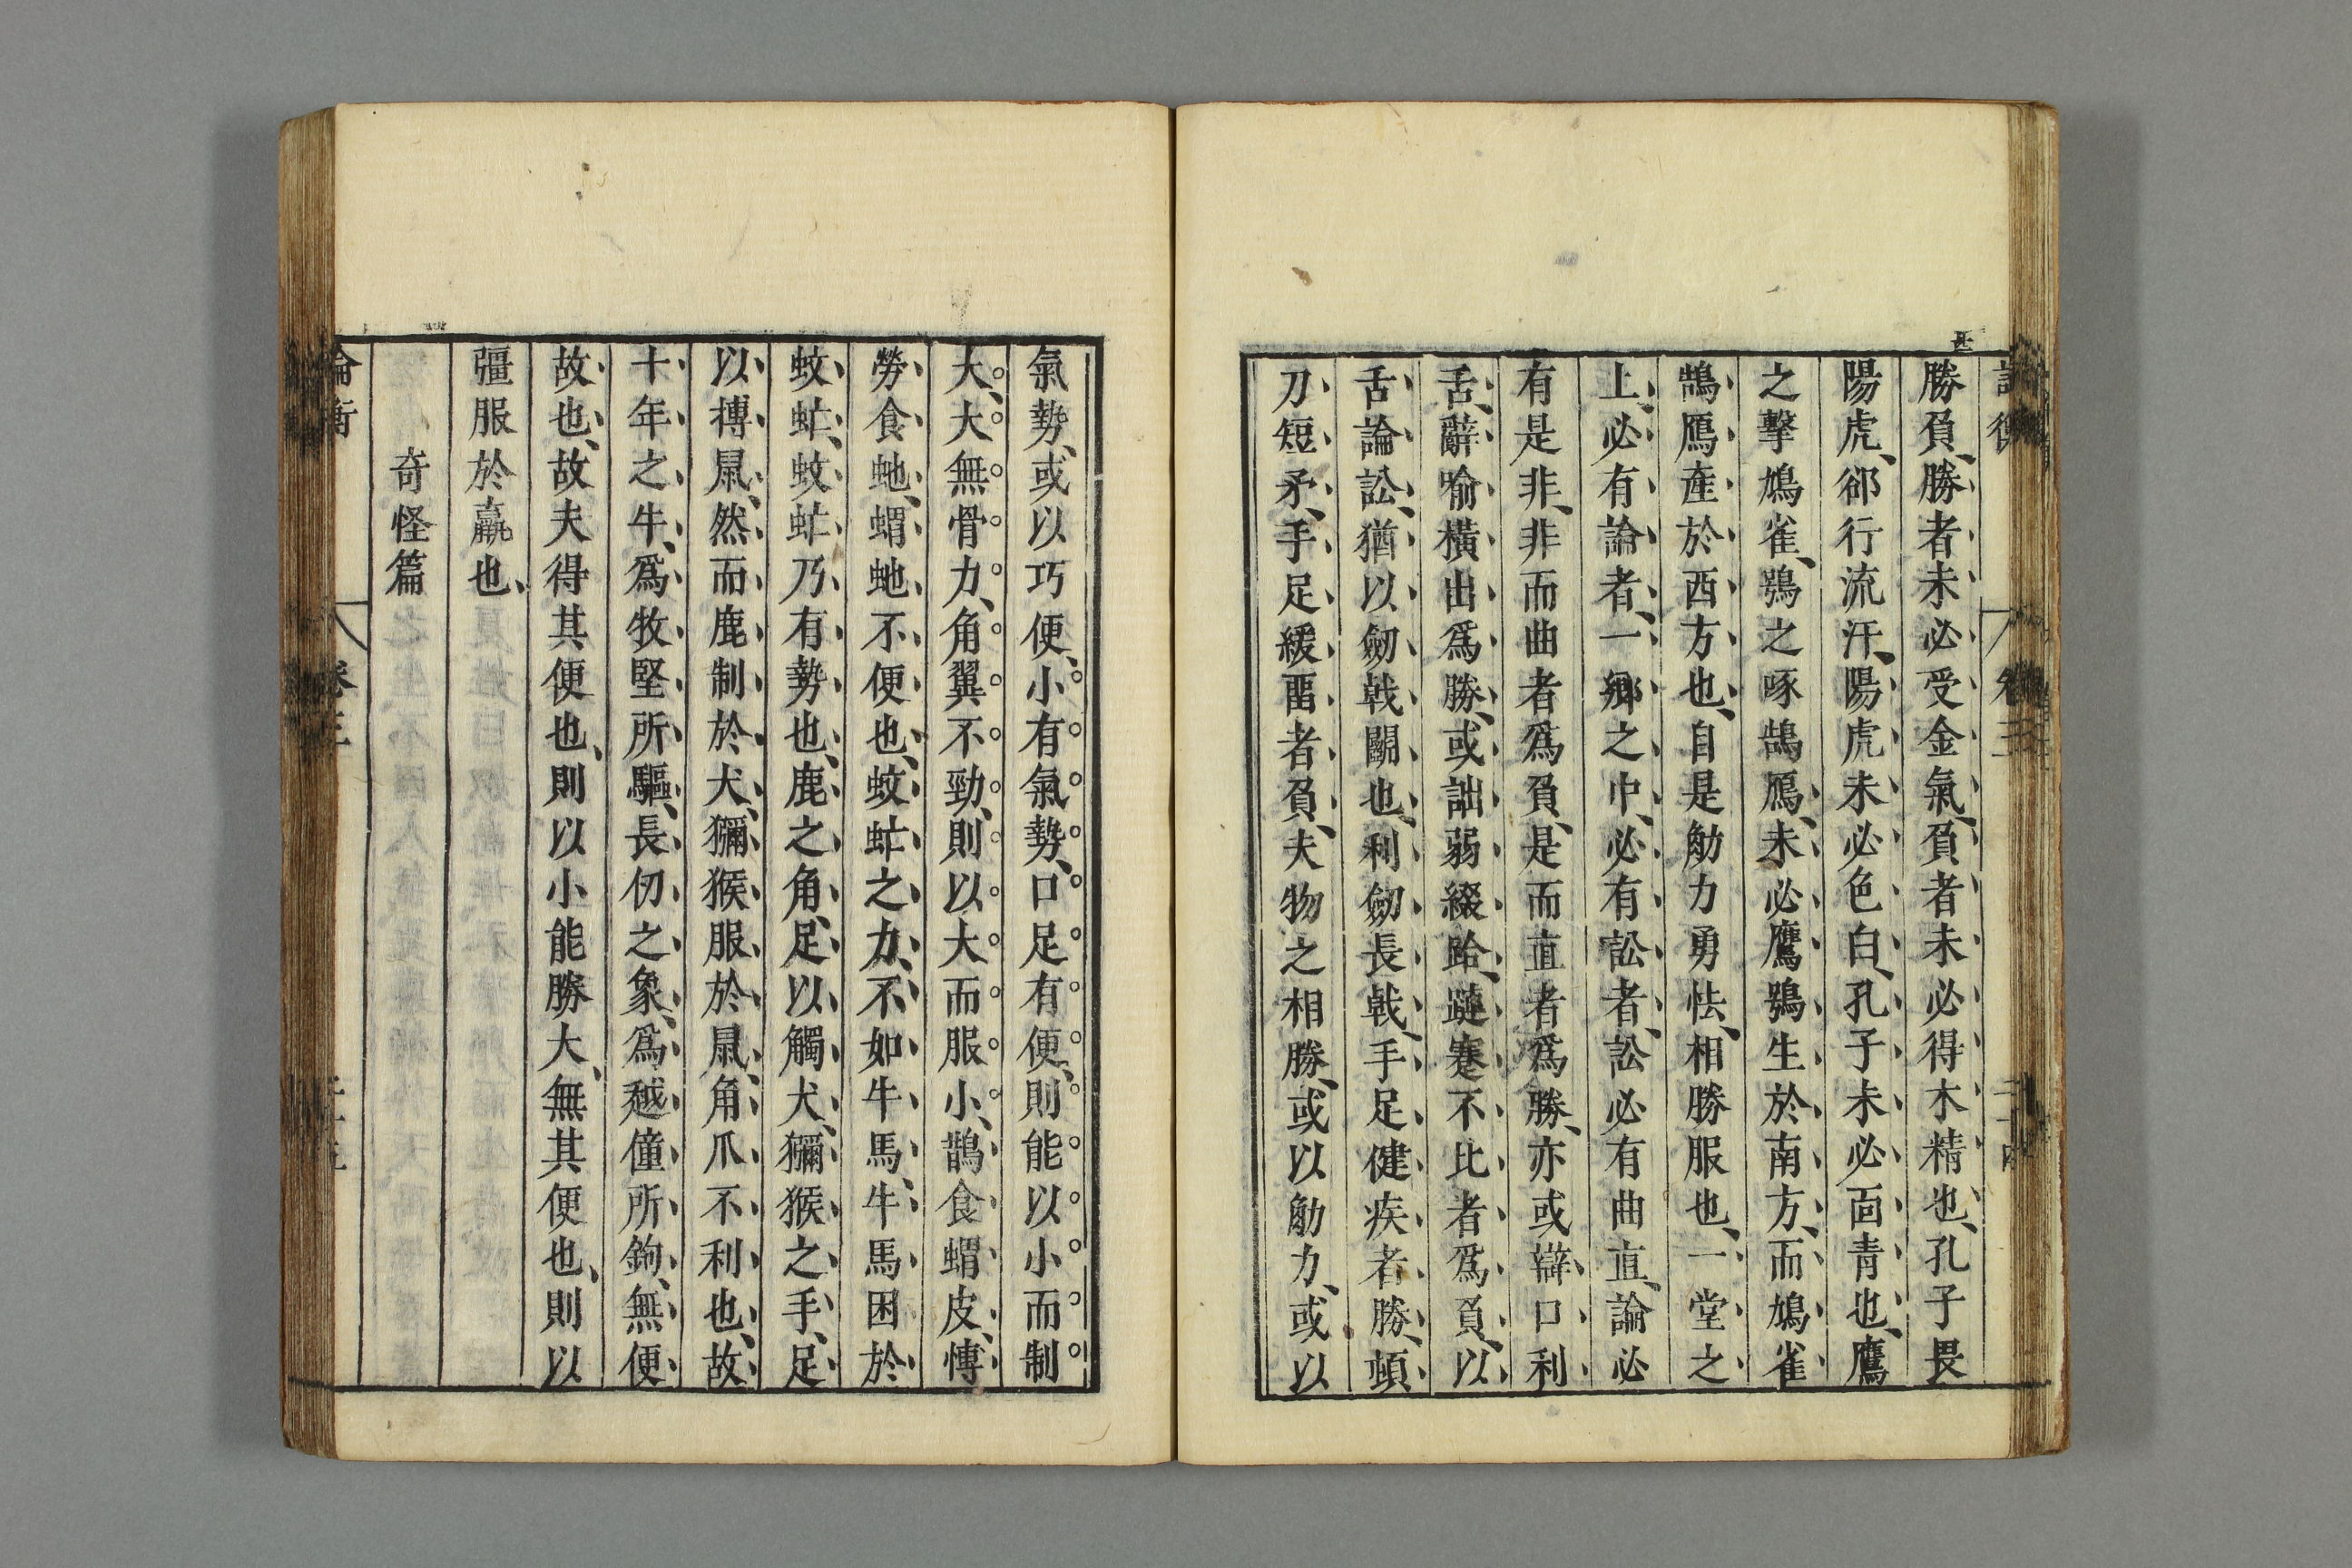 勝負、勝者未必受金氣、負者未必得木精也、孔子畏
陽虎、郤行流汗、陽虎未必色白、孔子未必面青也、鷹
之擊鳩雀、鴞之啄鵠鴈、未必鷹鴞生於南方、而鳩雀
鵠鴈產於西方也、自是觔力勇怯、相勝服也、一堂之
上、必有論者、一鄉之中、必有訟者、訟必有曲直、論必
有是非、非而曲者爲負、是而直者爲勝、亦或辯口利
舌、辭喻橫出爲勝、或詘弱綴跲、蹥蹇不比者爲負、以
舌論訟、猶以劒戟鬭也、利劒長戟、手足健疾者勝、頓
刀短矛、手足緩畱者負、夫物之相勝、或以觔力、或以
氣勢、或以巧便、小有氣勢、口足有便、則能以小而制
大、大無骨力、角翼不勁、則以大而服小、鵲食蝟皮、慱
勞食虵、蝟虵不便也、蚊虻之力、不如牛馬、牛馬困於
蚊虻、蚊虻乃有勢也、鹿之角、足以觸犬、獼猴之手、足
以搏鼠、然而鹿制於犬、獼猴服於鼠、角爪不利也、故
十年之牛、爲牧堅所驅、長仞之象、爲越僮所鉤、無便
故也、故夫得其便也、則以小能勝大、無其便也、則以
彊服於羸也、
奇怪篇
論衡 卷三